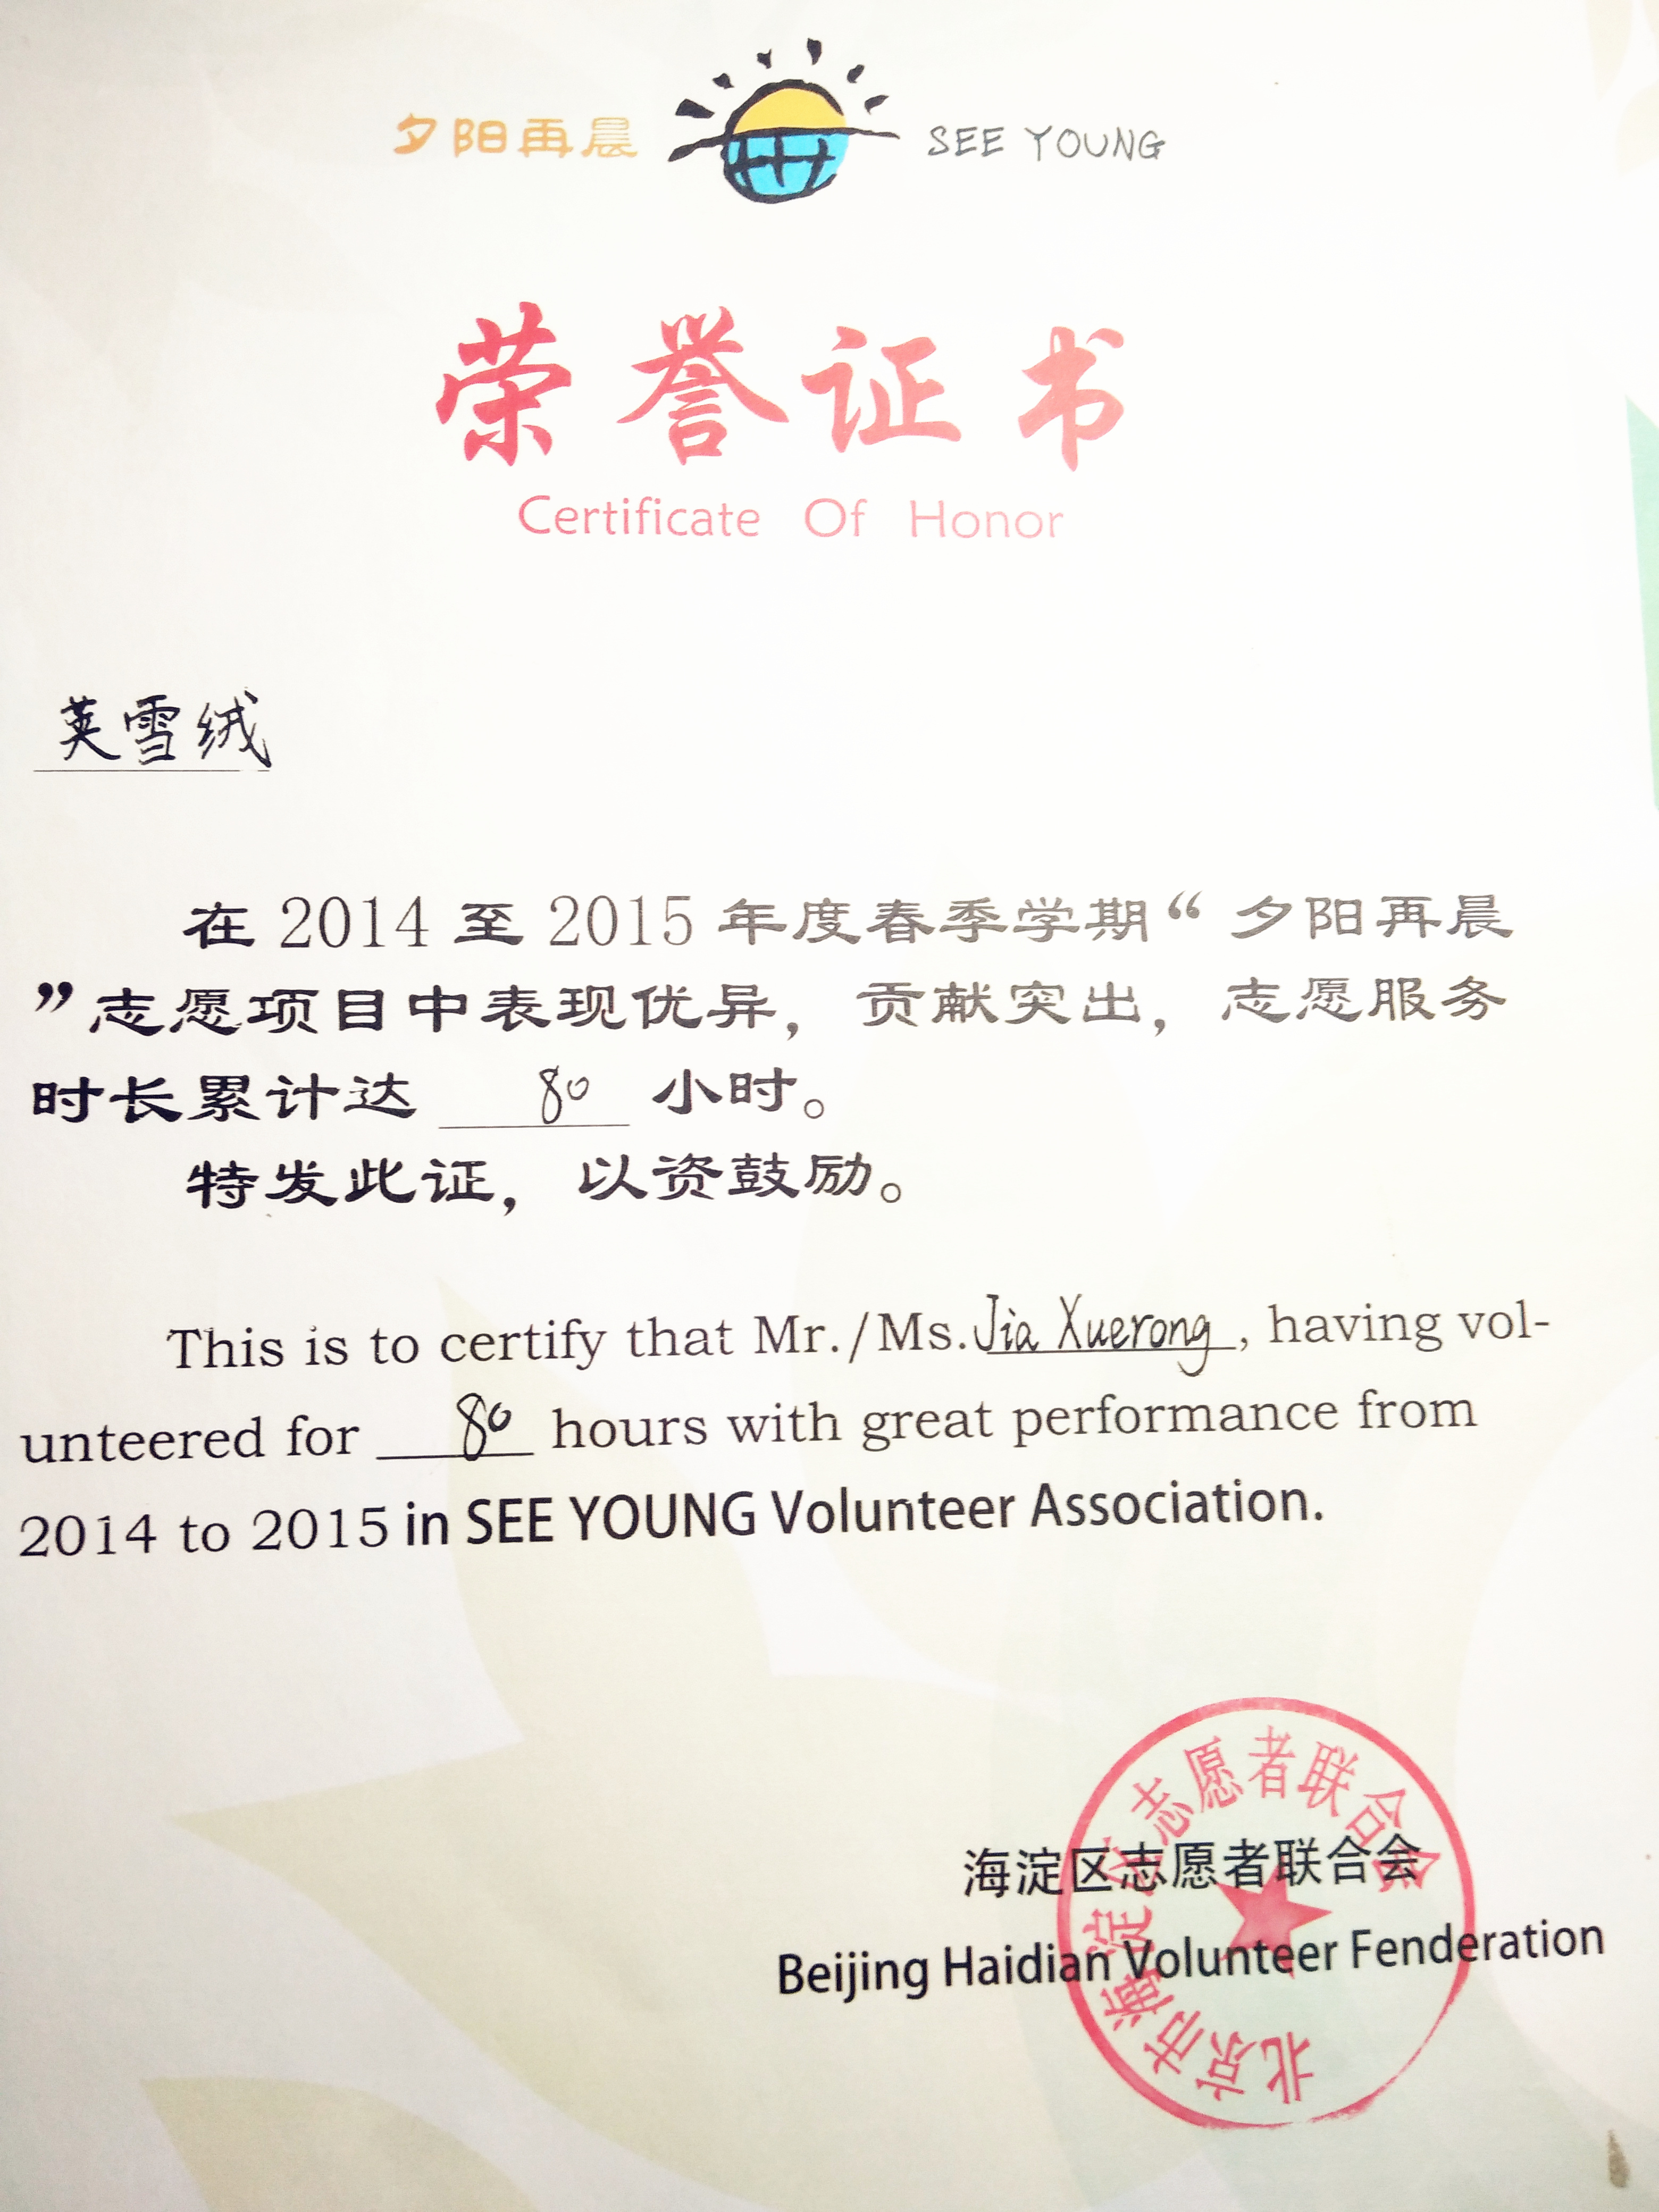 夕阳再晨 SEE YOUNG
荣誉证书
Certificate Of Honor
荚雪绒
在 2014 至 2015 年度春季学期“夕阳再晨
”志愿项目中表现优异，贡献突出，志愿服务
时长累计达 80 小时。
特发此证，以资鼓励。
This is to certify that Mr./Ms. Jia Xuerong, having vol-
unteered for 80 hours with great performance from
2014 to 2015 in SEE YOUNG Volunteer Association.
海淀区志愿者联合会
Beijing Haidian Volunteer Fenderation
北京市海淀区志愿者联合会